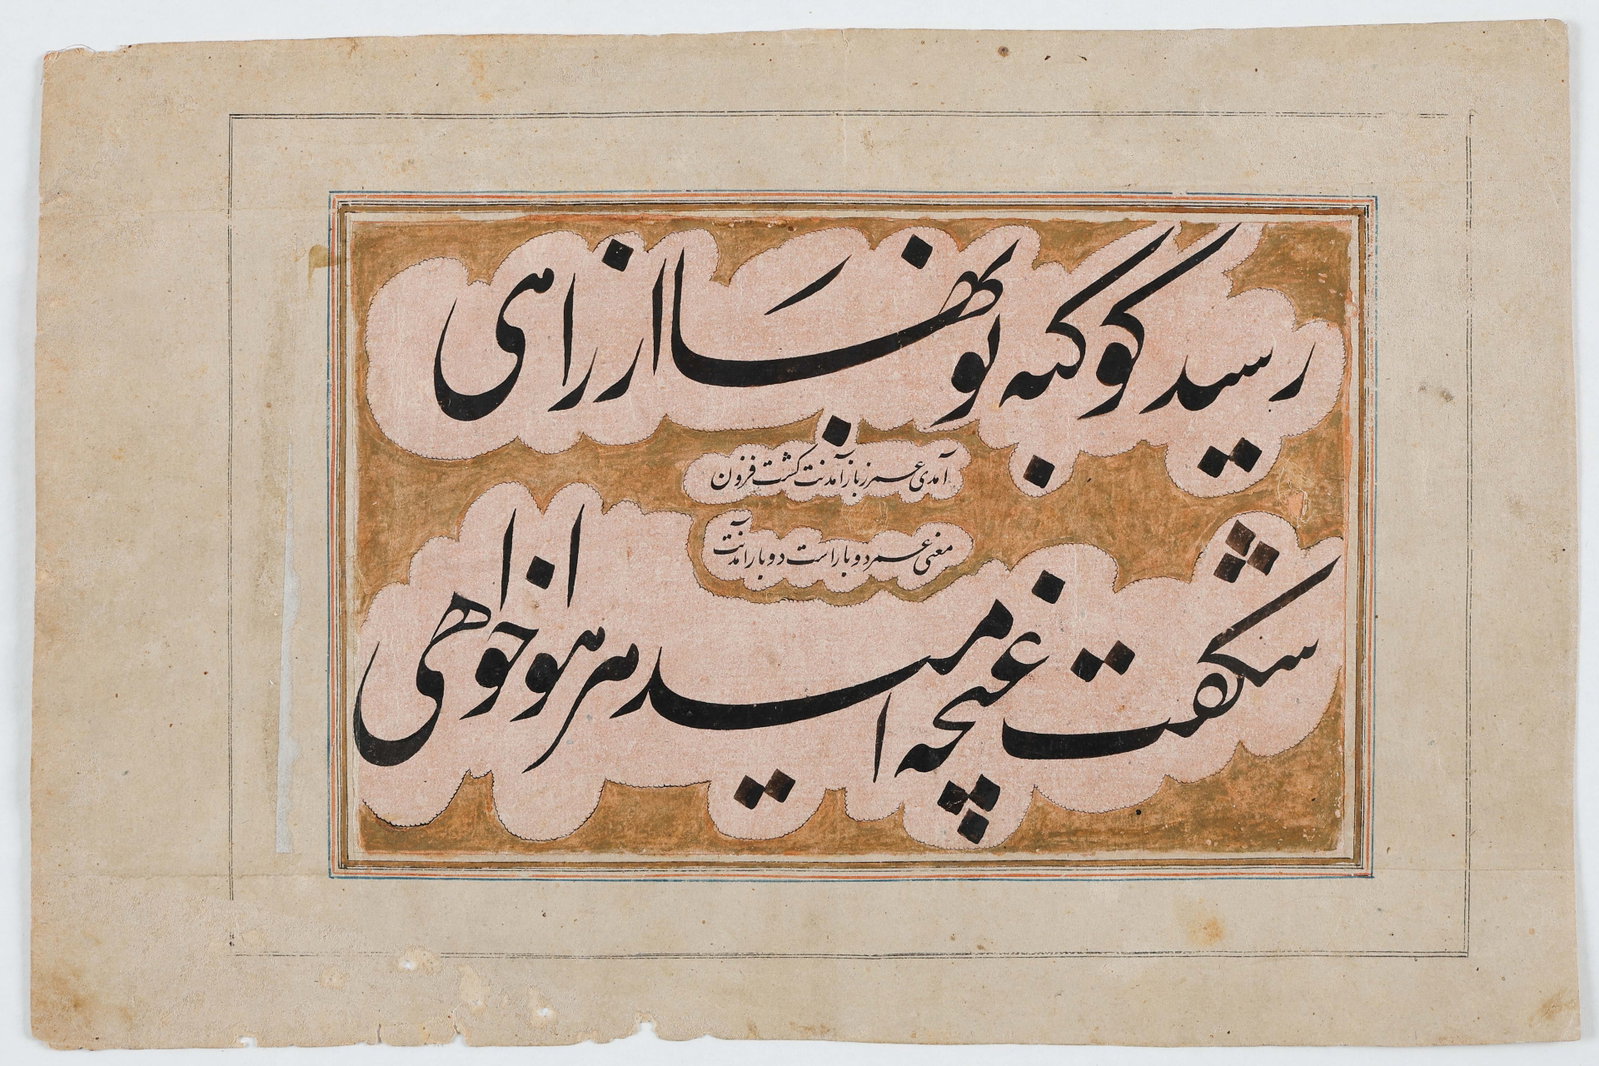 رسید کوکبه نوبهار از راهی
آمدی عمر ز باز آمدنت گشت فزون
معنی عمر دوبار است دوبار آمدنت
شکفت غنچه امید هر هواخواهی